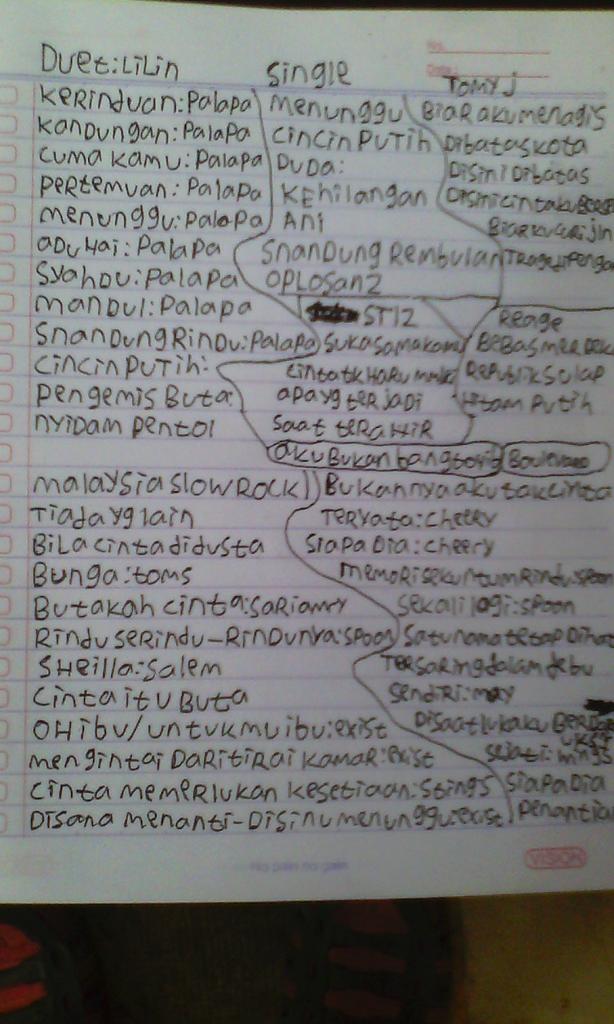 Duet:LiLin
Single
TOMY J
No.
Date
KERINDUAN:PALAPA
KANDUNGAN:PALAPA
CUMA KAMU:PALAPA
PERTEMUAN:PALAPA
MENUNGGU:PALAPA
ADUHAI:PALAPA
SYAHDU:PALAPA
MANDUL:PALAPA
SNANDUNG RINDU:PALAPA
CINCIN PUTIH:
PENGEMIS BUTA
NYIDAM PENTOL
MENUNGGU
CINCIN PUTIH
DUDA:
KEHILANGAN
ANI
SNANDUNG REMBULAN
OPLOSAN2
BIAR AKU MENAGIS
DIBATAS KOTA
DISINI DIBATAS
DISINI CINTAKU
BIARKU CARI JIN
ST12
SUKA SAMA KAMU
CINTA TK HARUS
APA YG TERJADI
SAAT TERAHIR
REAGE
BEBAS MERDEK
REPUBLIK SULAP
HITAM PUTIH
AKU BUKAN BANG TOYIB
BOULEVARD
MALAYSIA SLOW ROCK
TIADA YG LAIN
BILA CINTA DIDUSTA
BUNGA:TOMS
BUTAKAH CINTA:
RINDU SERINDU-RINDUNYA:SPOON
SHEILLA:SALEM
CINTA ITU BUTA
OH IBU/UNTUKMU IBU:EXIST
MENGINTAI DARI TIRAI KAMAR:EXIST
CINTA MEMERLUKAN KESETIAAN:STINGS
DISANA MENANTI-DISINI MENUNGGU:EXIST
BUKANNYA AKU TAK CINTA
TERYATA:CHEERY
SIAPA DIA:CHEERY
MEMORI SEKUNTUM RINDU:SPOON
SEKALI LAGI:SPOON
SATU NAMA TETAP DIHAT
TERSARING DALAM DEBU
SENDIRI:MAY
DISAAT LUKAKU
SEJATI:WINGS
SIAPA DIA
PENANTIA
No pain no gain
VISION